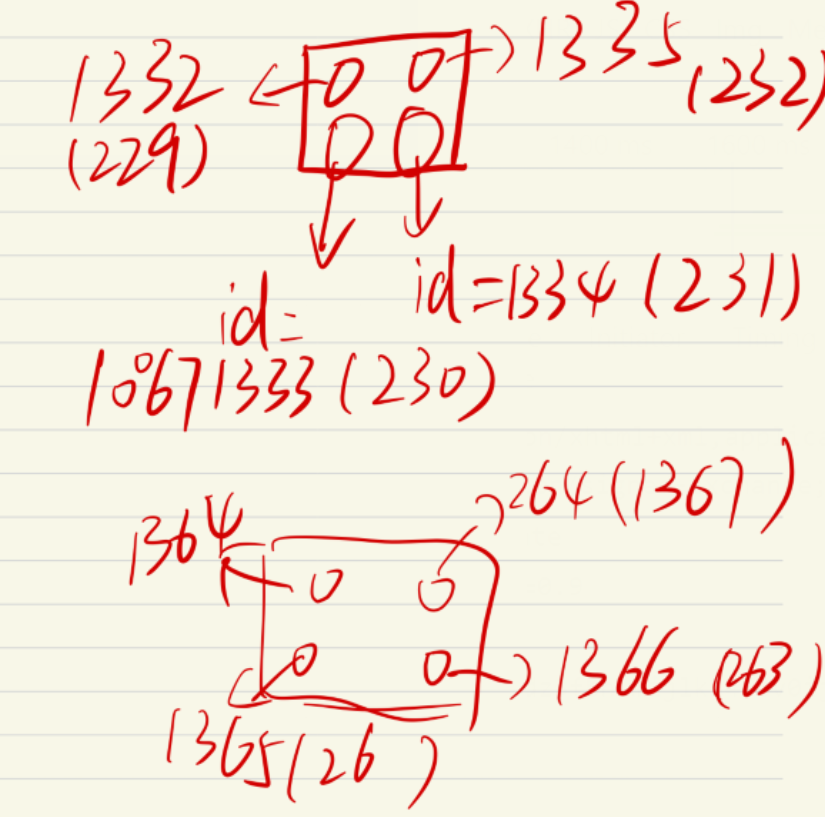 1332
(229)
1335
(232)
id=
10671333 (230)
id=1334 (231)
1364
264 (1367)
1365 (26 )
1366 (263)